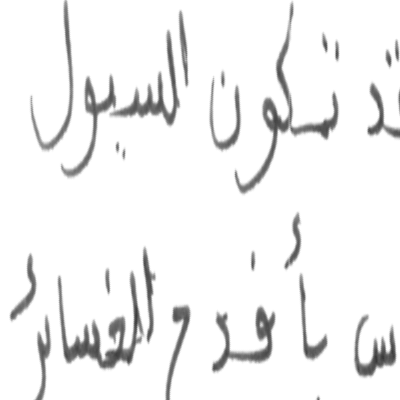 قد تكون السيول
س بأفدح الخسائر